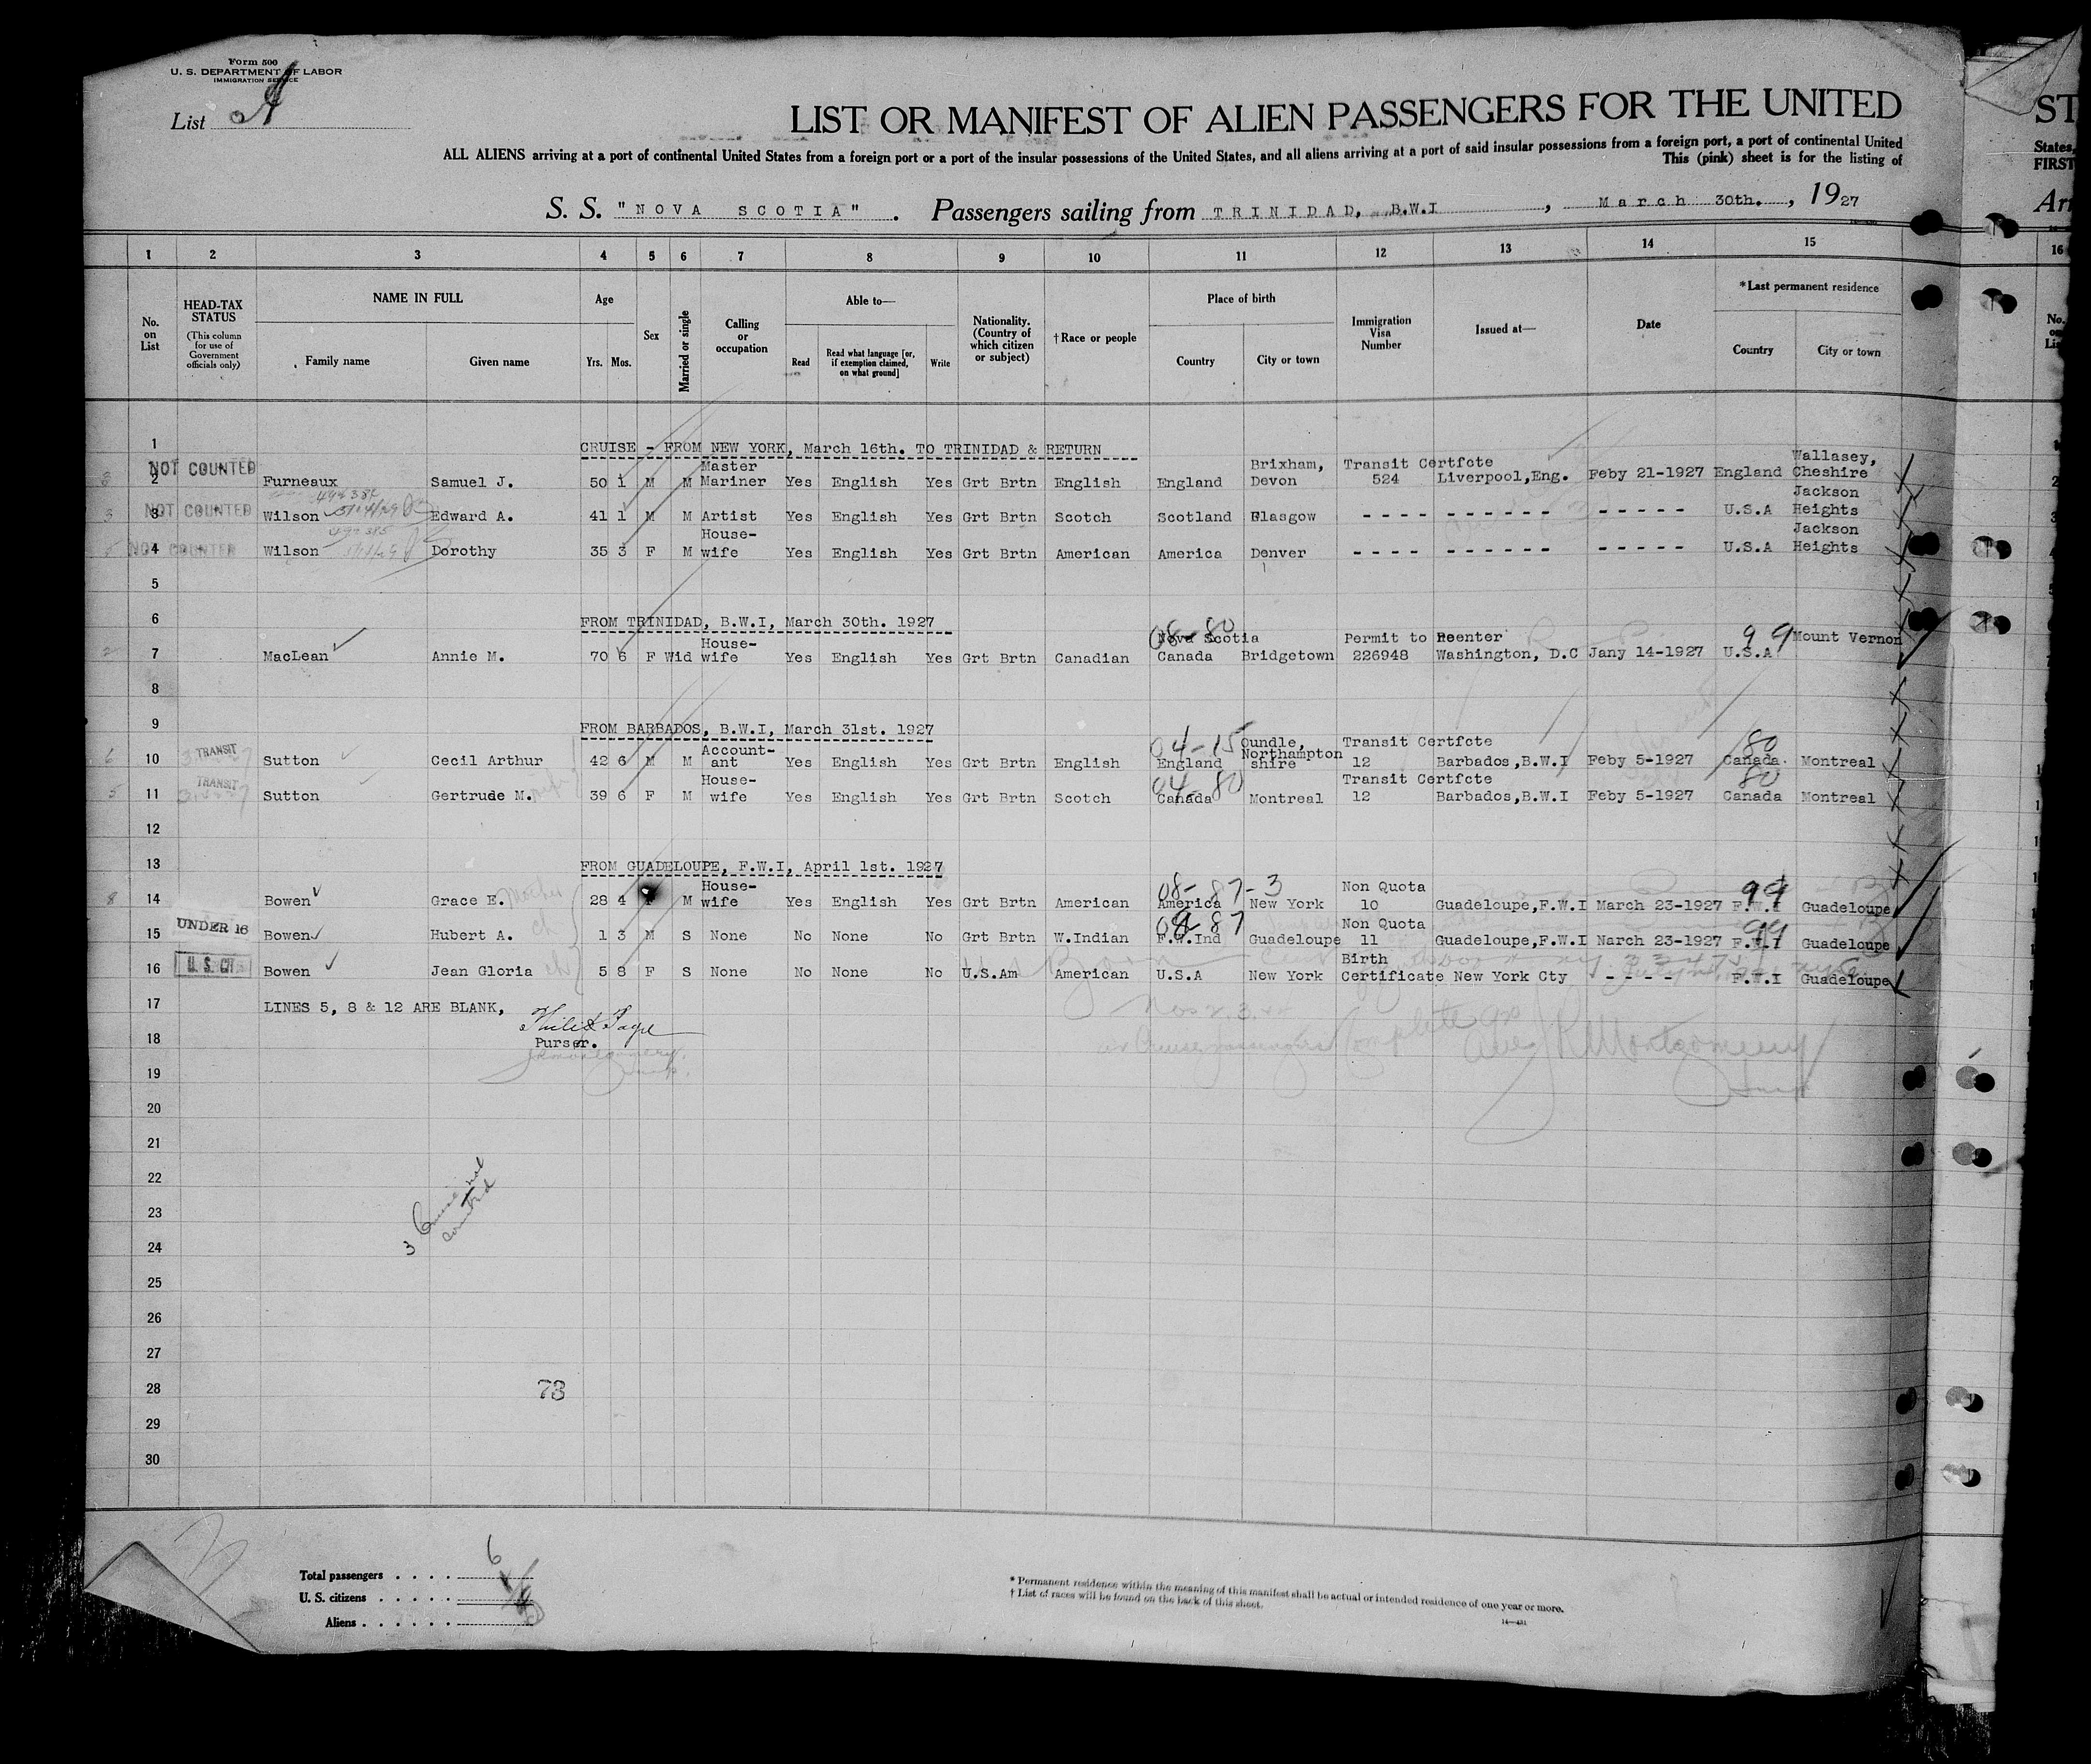 Form 500
U. S. DEPARTMENT OF LABOR
IMMIGRATION SERVICE
List A
LIST OR MANIFEST OF ALIEN PASSENGERS FOR THE UNITED
ST
ALL ALIENS arriving at a port of continental United States from a foreign port or a port of the insular possessions of the United States, and all aliens arriving at a port of said insular possessions from a foreign port, a port of continental United
States,
This (pink) sheet is for the listing of
FIRST
S. S. "NOVA SCOTIA". Passengers sailing from TRINIDAD, B.W.I , March 30th. , 1927
1 2 3 4 5 6 7 8 9 10 11 12 13 14 15 16
No. on List
HEAD-TAX STATUS (This column for use of Government officials only)
NAME IN FULL
Family name Given name
Age
Yrs. Mos.
Sex
Married or single
Calling or occupation
Able to—
Read Read what language [or, if exemption claimed, on what ground] Write
Nationality. (Country of which citizen or subject)
†Race or people
Place of birth
Country City or town
Immigration Visa Number
Issued at—
Date
*Last permanent residence
Country City or town
1 CRUISE - FROM NEW YORK, March 16th. TO TRINIDAD & RETURN
NOT COUNTED
2 Furneaux Samuel J. 50 1 M M Master Mariner Yes English Yes Grt Brtn English England Brixham, Devon Transit Certfcte 524 Liverpool,Eng. Feby 21-1927 England Wallasey, Cheshire
NOT COUNTED
3 Wilson Edward A. 41 1 M M Artist Yes English Yes Grt Brtn Scotch Scotland Glasgow - - - - - - - - - - - - - - - U.S.A Jackson Heights
NOT COUNTED
4 Wilson Dorothy 35 3 F M House-wife Yes English Yes Grt Brtn American America Denver - - - - - - - - - - - - - - - U.S.A Jackson Heights
5
6 FROM TRINIDAD, B.W.I, March 30th. 1927
08-80
99
7 MacLean Annie M. 70 6 F Wid House-wife Yes English Yes Grt Brtn Canadian Nova Scotia Canada Bridgetown Permit to Reenter 226948 Washington, D.C Jany 14-1927 U.S.A Mount Vernon
8
9 FROM BARBADOS, B.W.I, March 31st. 1927
TRANSIT
04-15
80
10 Sutton Cecil Arthur 42 6 M M Account-ant Yes English Yes Grt Brtn English England Oundle, Northampton shire Transit Certfcte 12 Barbados,B.W.I Feby 5-1927 Canada Montreal
TRANSIT
04-80
80
11 Sutton Gertrude M. 39 6 F M House-wife Yes English Yes Grt Brtn Scotch Canada Montreal Transit Certfcte 12 Barbados,B.W.I Feby 5-1927 Canada Montreal
12
13 FROM GUADELOUPE, F.W.I, April 1st. 1927
08-87-3
99
14 Bowen Grace E. Mother 28 4 F M House-wife Yes English Yes Grt Brtn American America New York Non Quota 10 Guadeloupe,F.W.I March 23-1927 F.W.I Guadeloupe
UNDER 16
08-87
99
15 Bowen Hubert A. ch 1 3 M S None No None No Grt Brtn W.Indian F.W.Ind Guadeloupe Non Quota 11 Guadeloupe,F.W.I Narch 23-1927 F.W.I Guadeloupe
U. S. CIT
16 Bowen Jean Gloria ch 5 8 F S None No None No U.S.Am American U.S.A New York Birth Certificate New York Cty - - - - F.W.I Guadeloupe
17 LINES 5, 8 & 12 ARE BLANK,
18 Purser.
19
20
21
22
23
24
25
26
27
28
29
30
3 Cruise not counted
73
Total passengers . . . . 6
U. S. citizens . . . . .
Aliens . . . . . .
* Permanent residence within the meaning of this manifest shall be actual or intended residence of one year or more.
† List of races will be found on the back of this sheet.